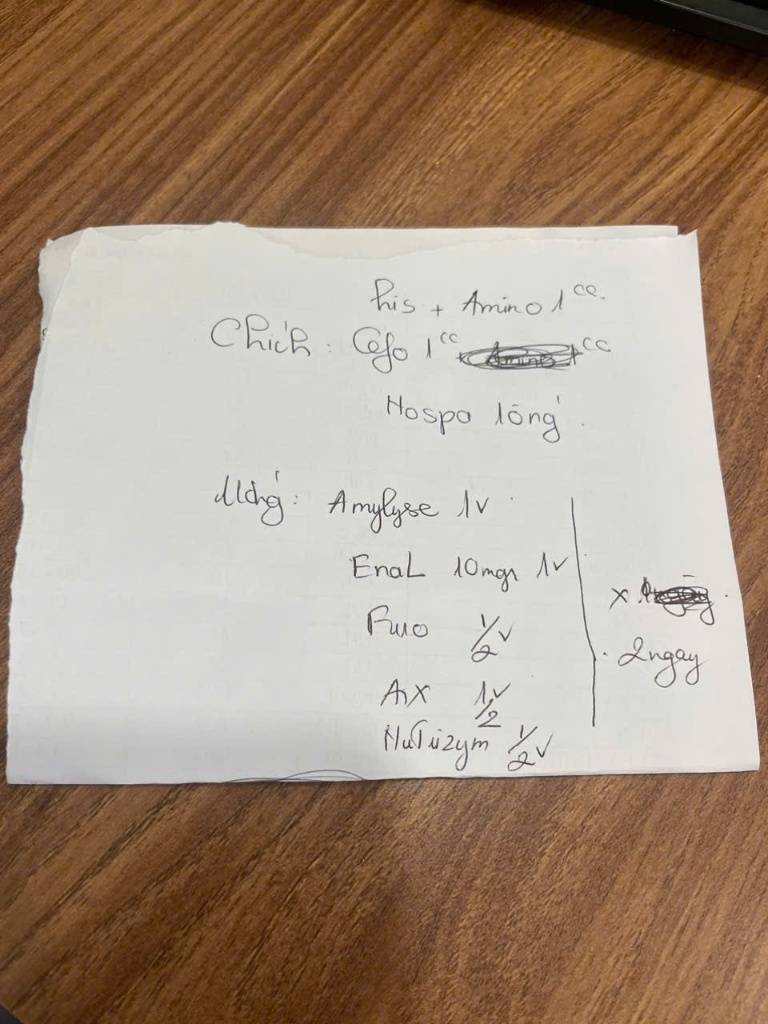 his + Amino 1cc.
Chích: Cefo 1cc cc
Hospa lõng
Uống: Amylyse 1v
Enal 10mg 1v
Furo 1/2v
x
2ngay
1/2v
1/2v